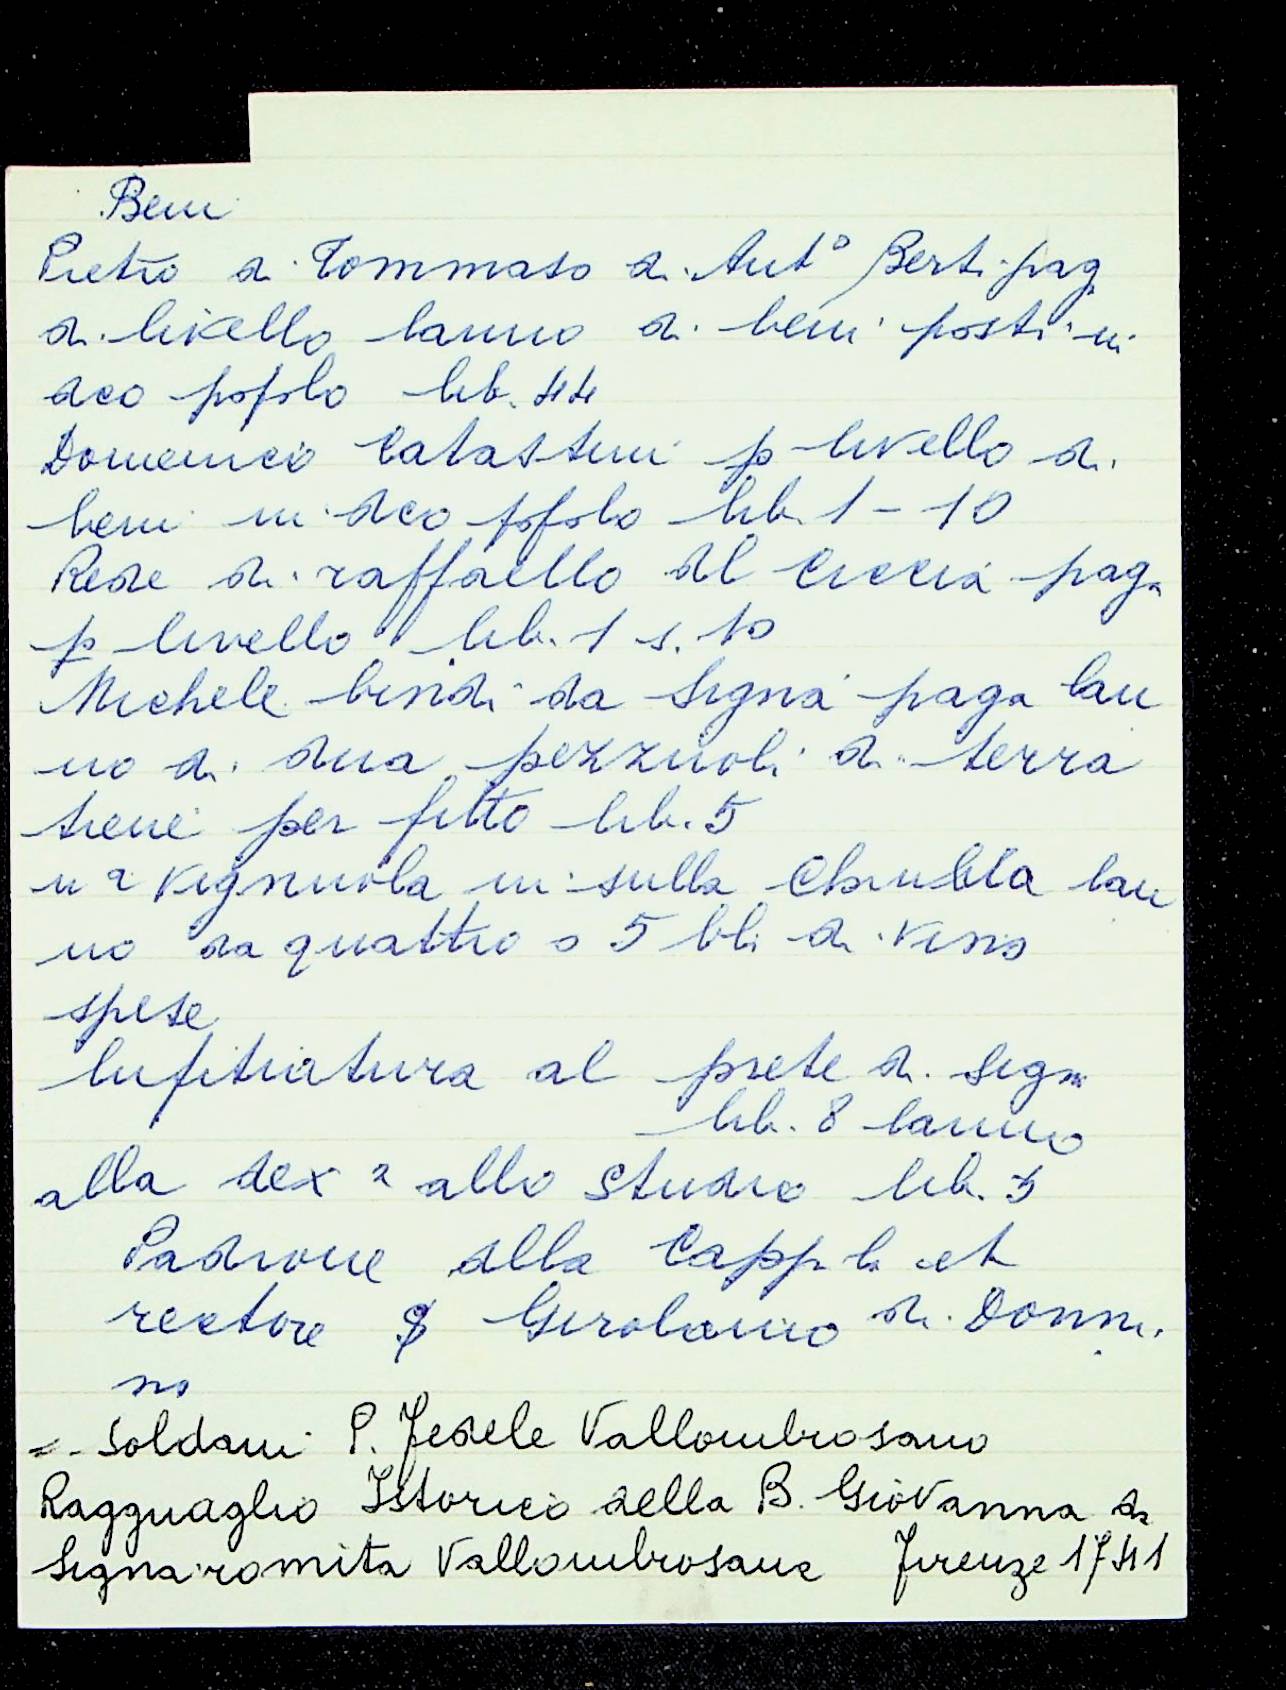 Beni
Pietro di Tommaso di Antº Berti pag
di livello lanno di beni posti in
dco popolo lib. 44
Domenico Catastini p livello di
beni in dco popolo lib. 1 - 10
Rede di raffaello del Ciecia paga
p livello lib. 1 s. 10
Michele bindi da Signa paga lan
no di dua pezzuoli di terra
tiene per fitto lib. 5
na vignuola in sulla lan
no da quattro o 5 bli di vino
spese
lufitiatura al prete di Signa
lib. 8 lanno
alla dexa allo Studio lib. 5
Padrone della Capp la et
rectore Girolamo di Donni
no
- Soldani P. Fedele Vallombrosano
Ragguaglio Istorico della B. Giovanna da
Signa romita Vallombrosana Firenze 1741